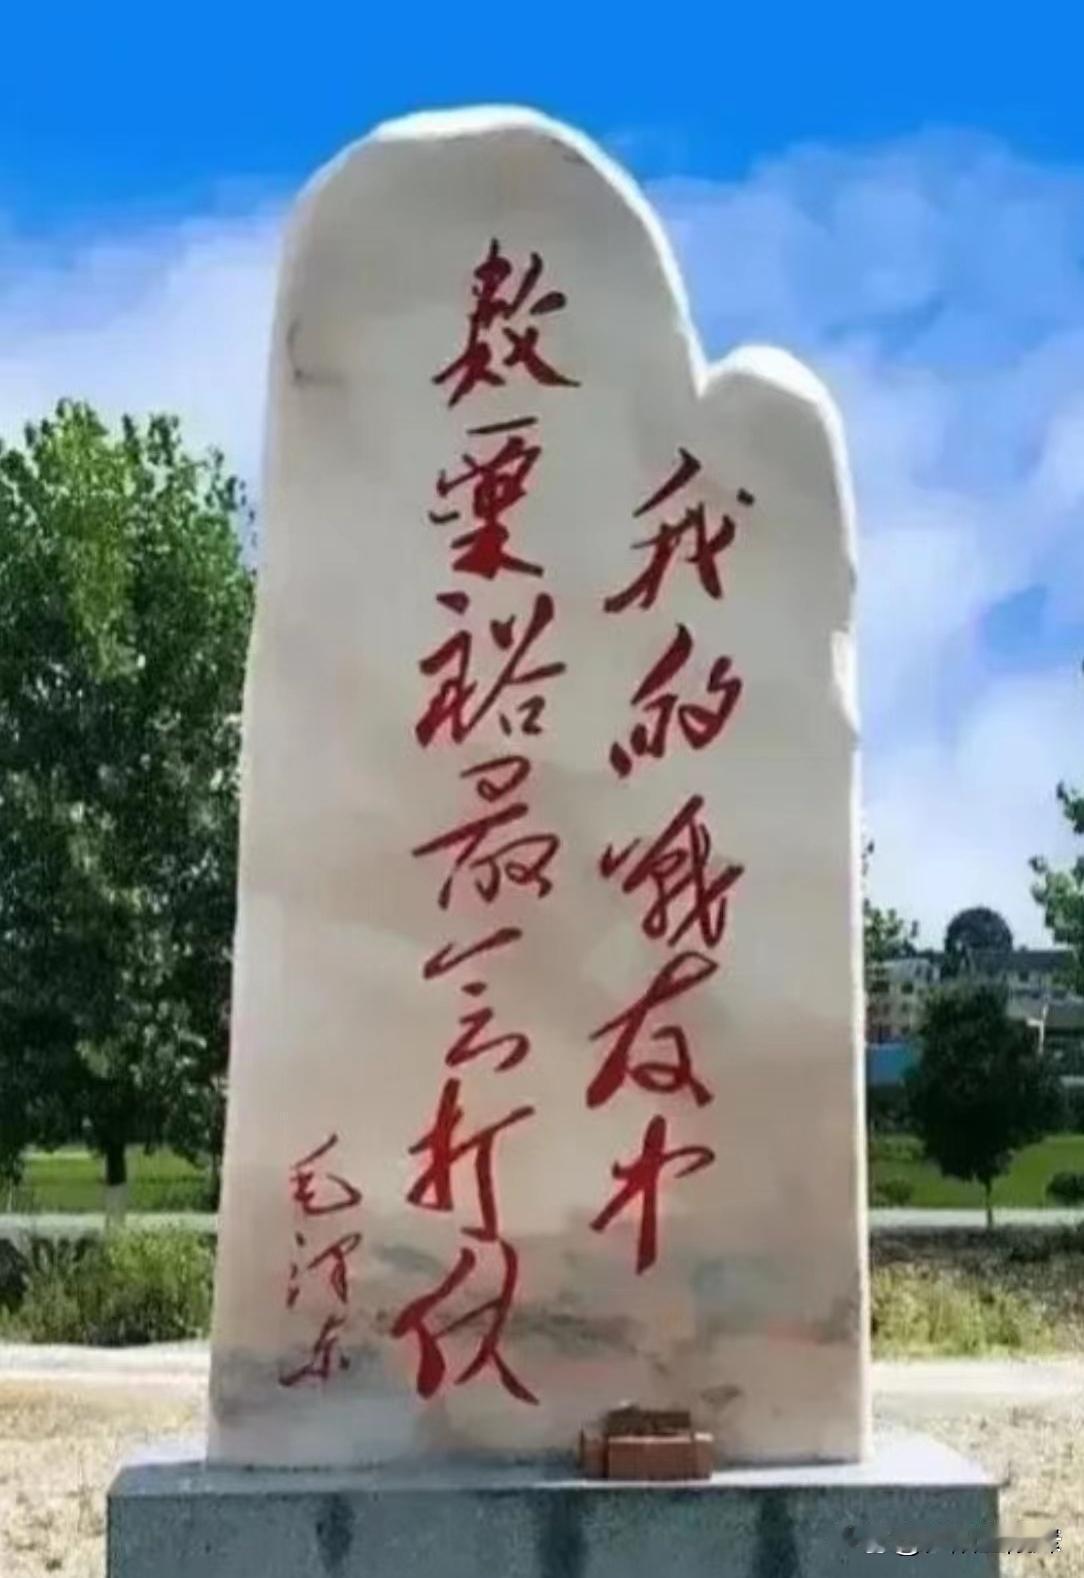 我的战友中
数粟裕最会打仗
毛泽东